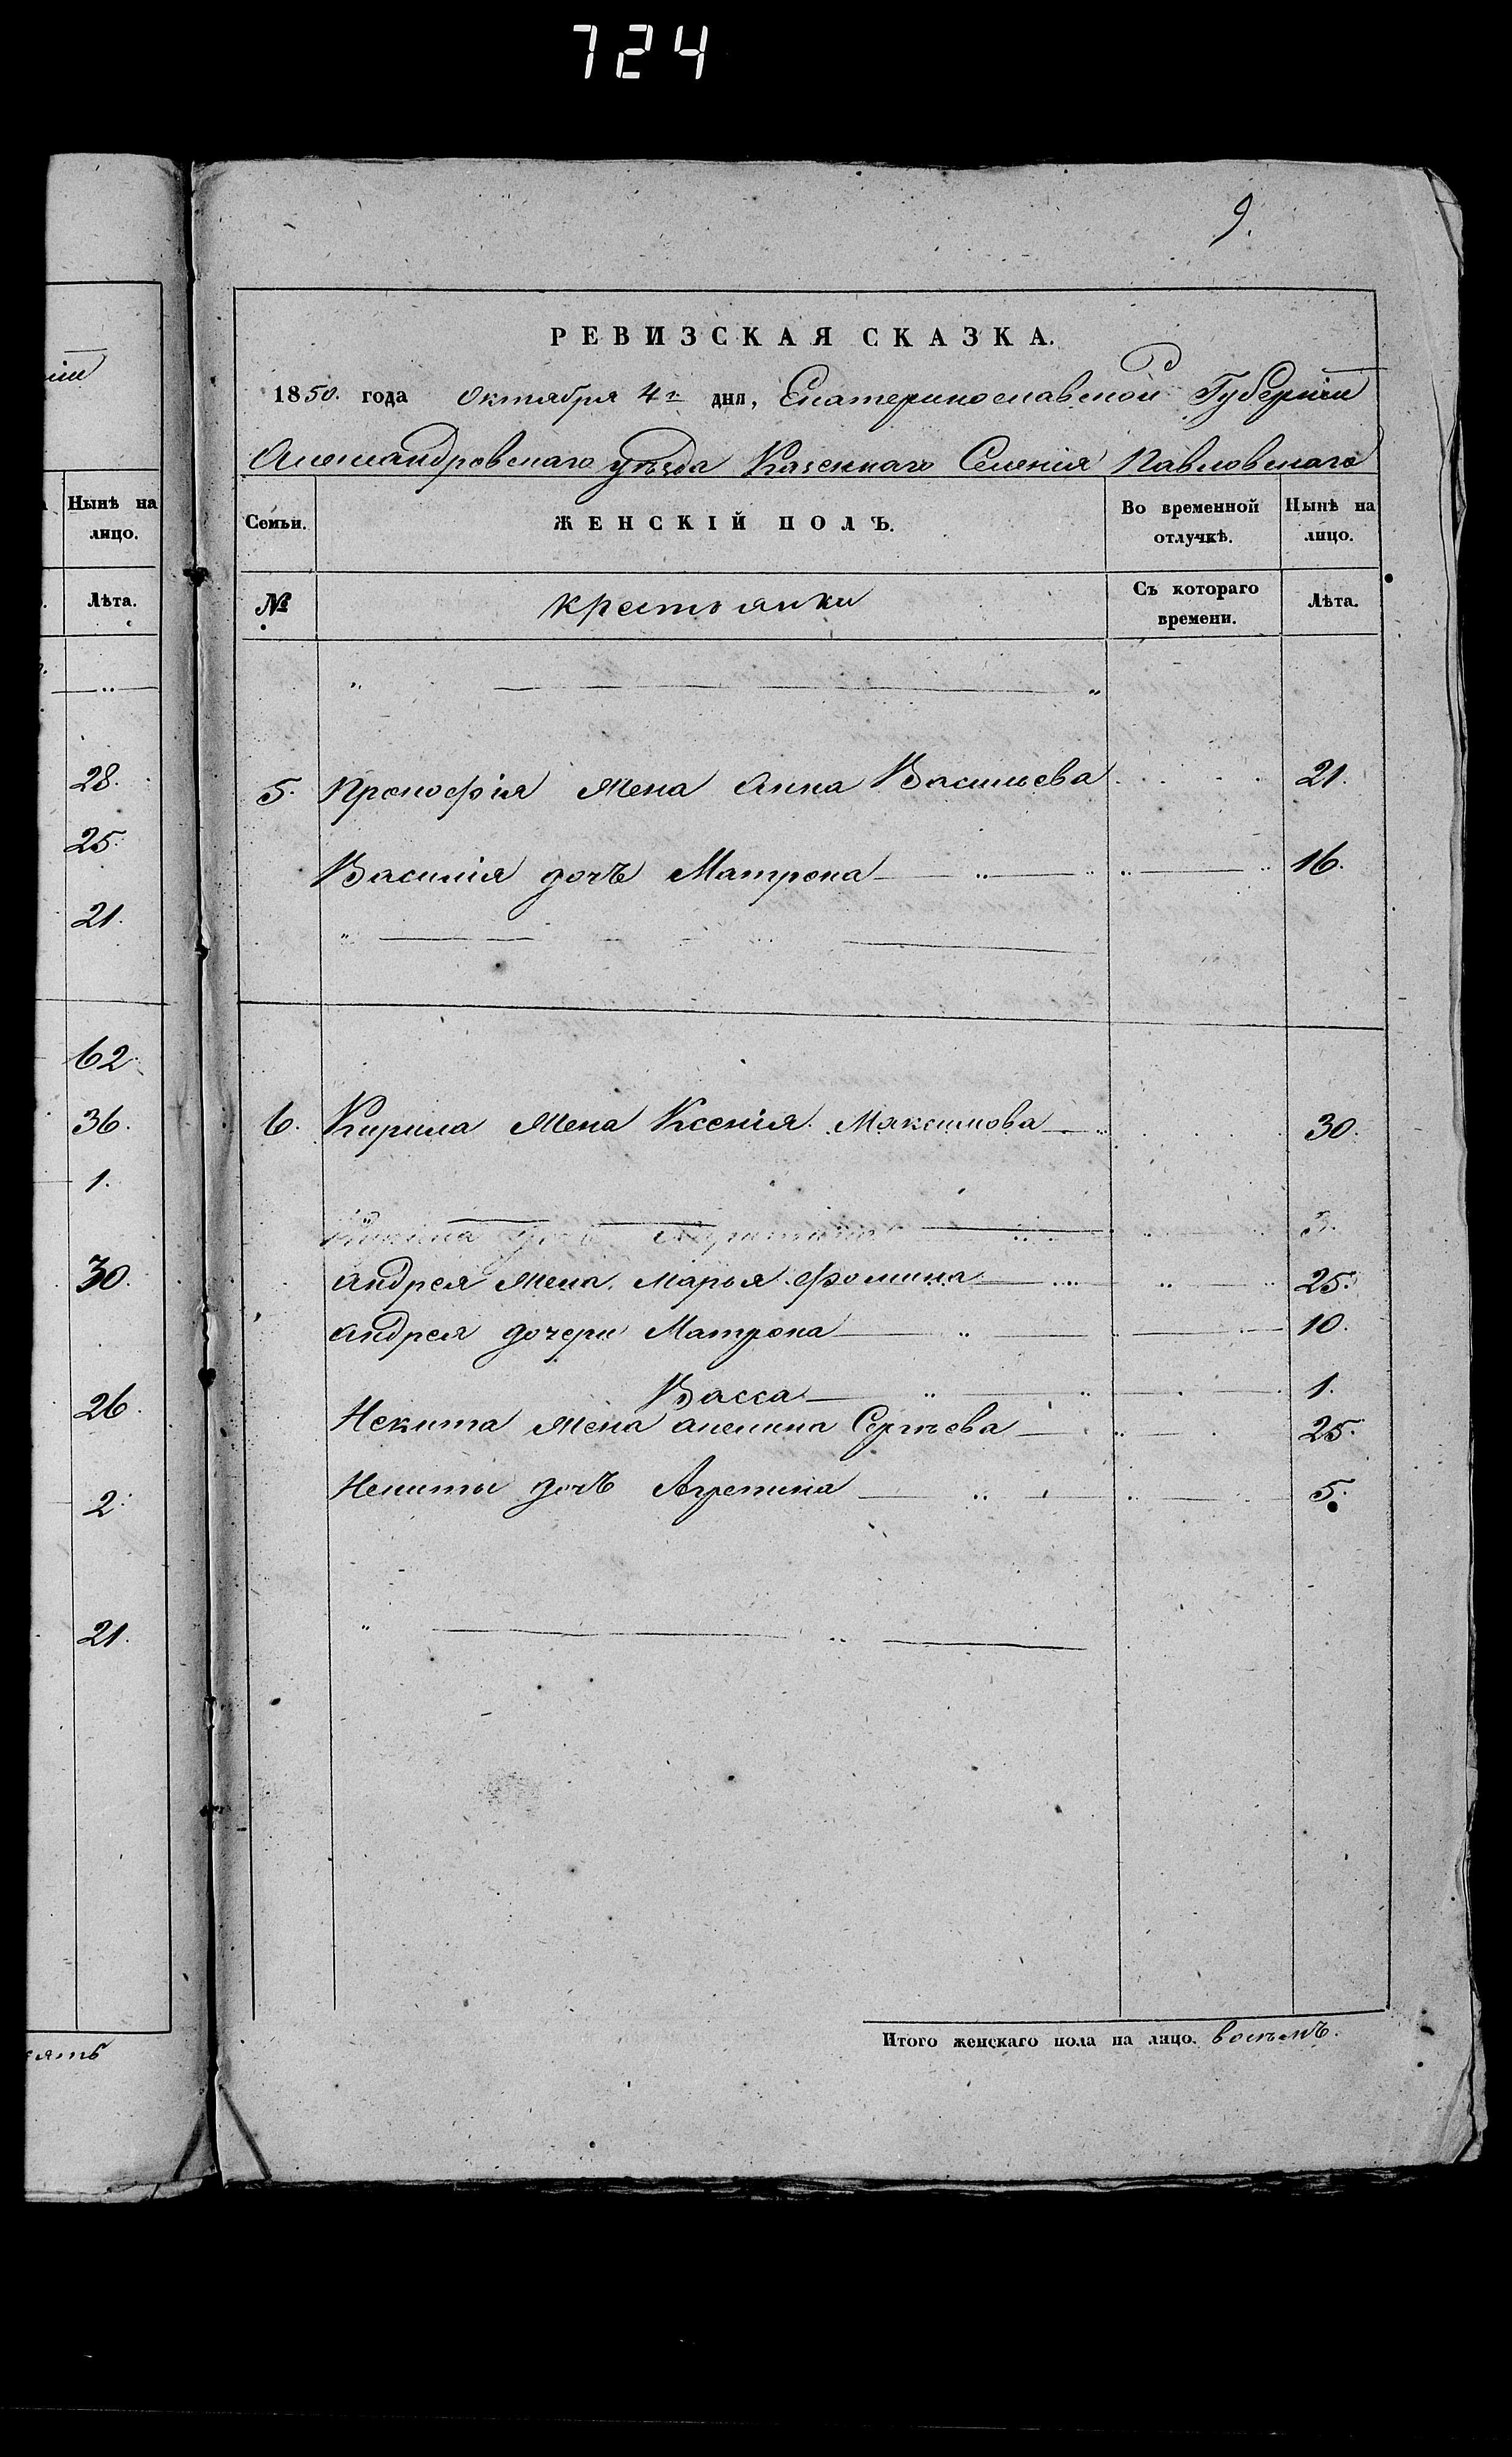 724
9.
РЕВИЗСКАЯ СКАЗКА.
1850. года Октября 4го дня, Екатеринославской Губерніи
Александровскаго уѣзда Казеннаго Селенія Павловскаго
ніи
Нынѣ на лицо.
Лѣта.
28.
25.
21.
62
36.
1.
30.
26.
2.
21.
ять
Семьи. ЖЕНСКІЙ ПОЛЪ. Во временной отлучкѣ. Нынѣ на лицо.
№ крестьянки Съ котораго времени. Лѣта.
5. Прокофія Жена Анна Васильева 21.
Василія дочь Матрона 16.
6. Кирила Жена Ксенія Максимова 30.
3.
Андрея Жена Марья Фомина 25.
Андрея дочери Матрона 10.
Васса 1.
Некита Жена Акелина Сергѣева 25.
Некиты дочь Агрепина 5.
Итого женскаго пола на лицо. восъмъ.